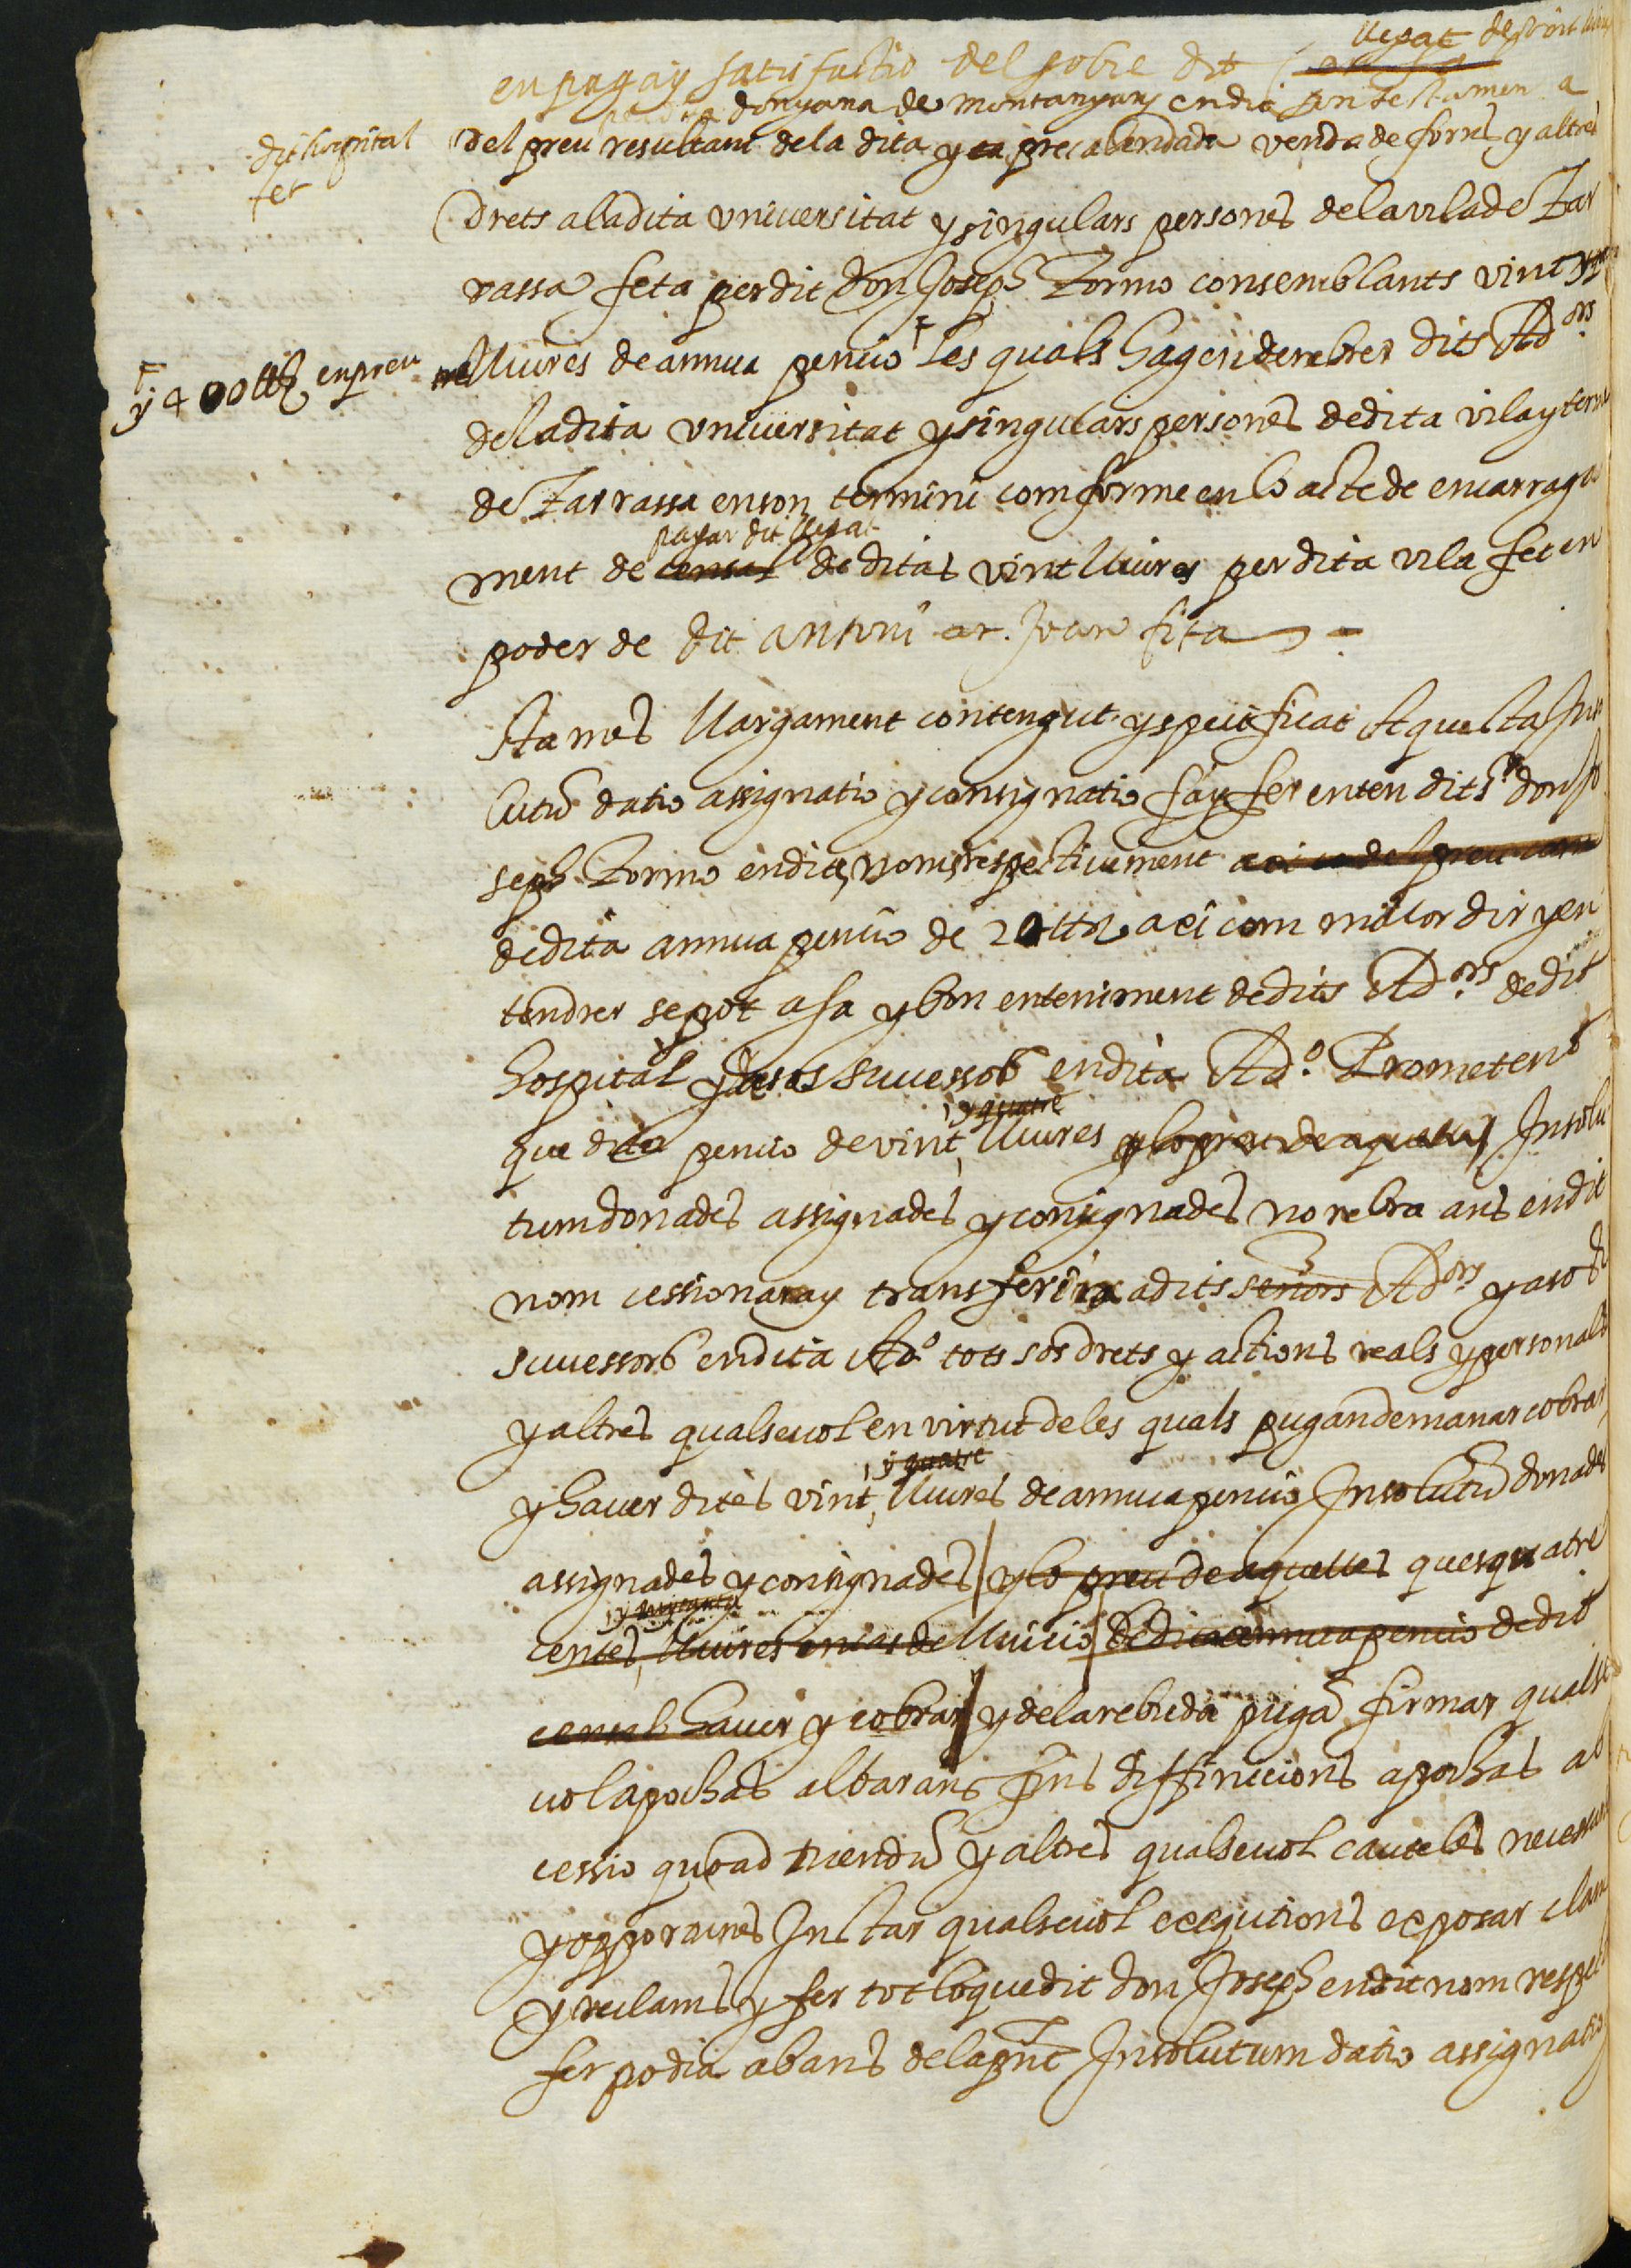 llegat de vint lliur
en paga y satisfactio del sobre dit
donyana de montanyans en dit son testamen a
dit hospital
fet
Del preu resultant de la dita y precalendada venda de forns y altres
Drets a la dita vniuersitat y singulars persones de la vila de Tar
rassa feta per dit Don Joseph Tormo consemblants vint y
lliures de annua pencio les quals hagen de rebrer dits Adors
y 400 ll en preu
de la dita vniuersitat y singulars persones de dita vila y terme
de Tarrassa en son termini comforme en lo acte de encarrega
pagar dit llegat
ment de censal de ditas vint lliures per dita vila fet en
poder de dit Antoni Joan fita
sta mes llargament contengut y specificat Aquesta Inso
lutu datio assignatio y consignatio fa y fer enten dit Sr don Jo
seph Tormo en dits noms respectiuament
de dita annua pencio de 20 ll axi com millor dir y en
tendrer se pot a sa y bon enteniment de dits Adors de dit
hospital y a sos successors en dita Ado. Prometent
y quatre
que dita pencio de vint lliures y lo preu de aquelles Insolu
tum donades assignades y consignades no rebra ans en dit
nom cessionara y transferira a dits senors Adors y a sos
successors en dita Ado tots sos drets y actions reals y personals
y altres qualseuol en virtut de les quals pugan demanar cobrar
y quatre
y hauer dites vint lliures de annua pencio Insolutu donades
assignades y consignades y lo preu de aquelles ques quatre
centes lliures en cas de lluicio de dita annua pencio de dit
censal hauer y cobrar y de la rebuda puga firmar qualse
uol apochas albarans fins diffinicions apochas ab
cessio quoad tuendu y altres qualseuol cauteles necessari
y opportunes Instar qualseuol exequtions exposar clam
y reclams y fer tot lo que dit don Joseph en dit nom respect
fer podia abans de la pnt Insolutum datio assignatio